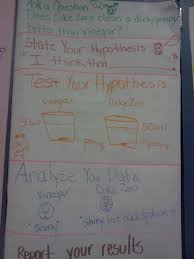 Ask a Question
Does Coke Zero clean a dirty penny
better than vinegar?
State Your Hypothesis
I think that
Test Your Hypothesis
Vinegar Coke Zero
50ml 50ml
penny penny
Analyze You Data
Vinegar Coke Zero
Shiny shiny but had spots on it
Report your results